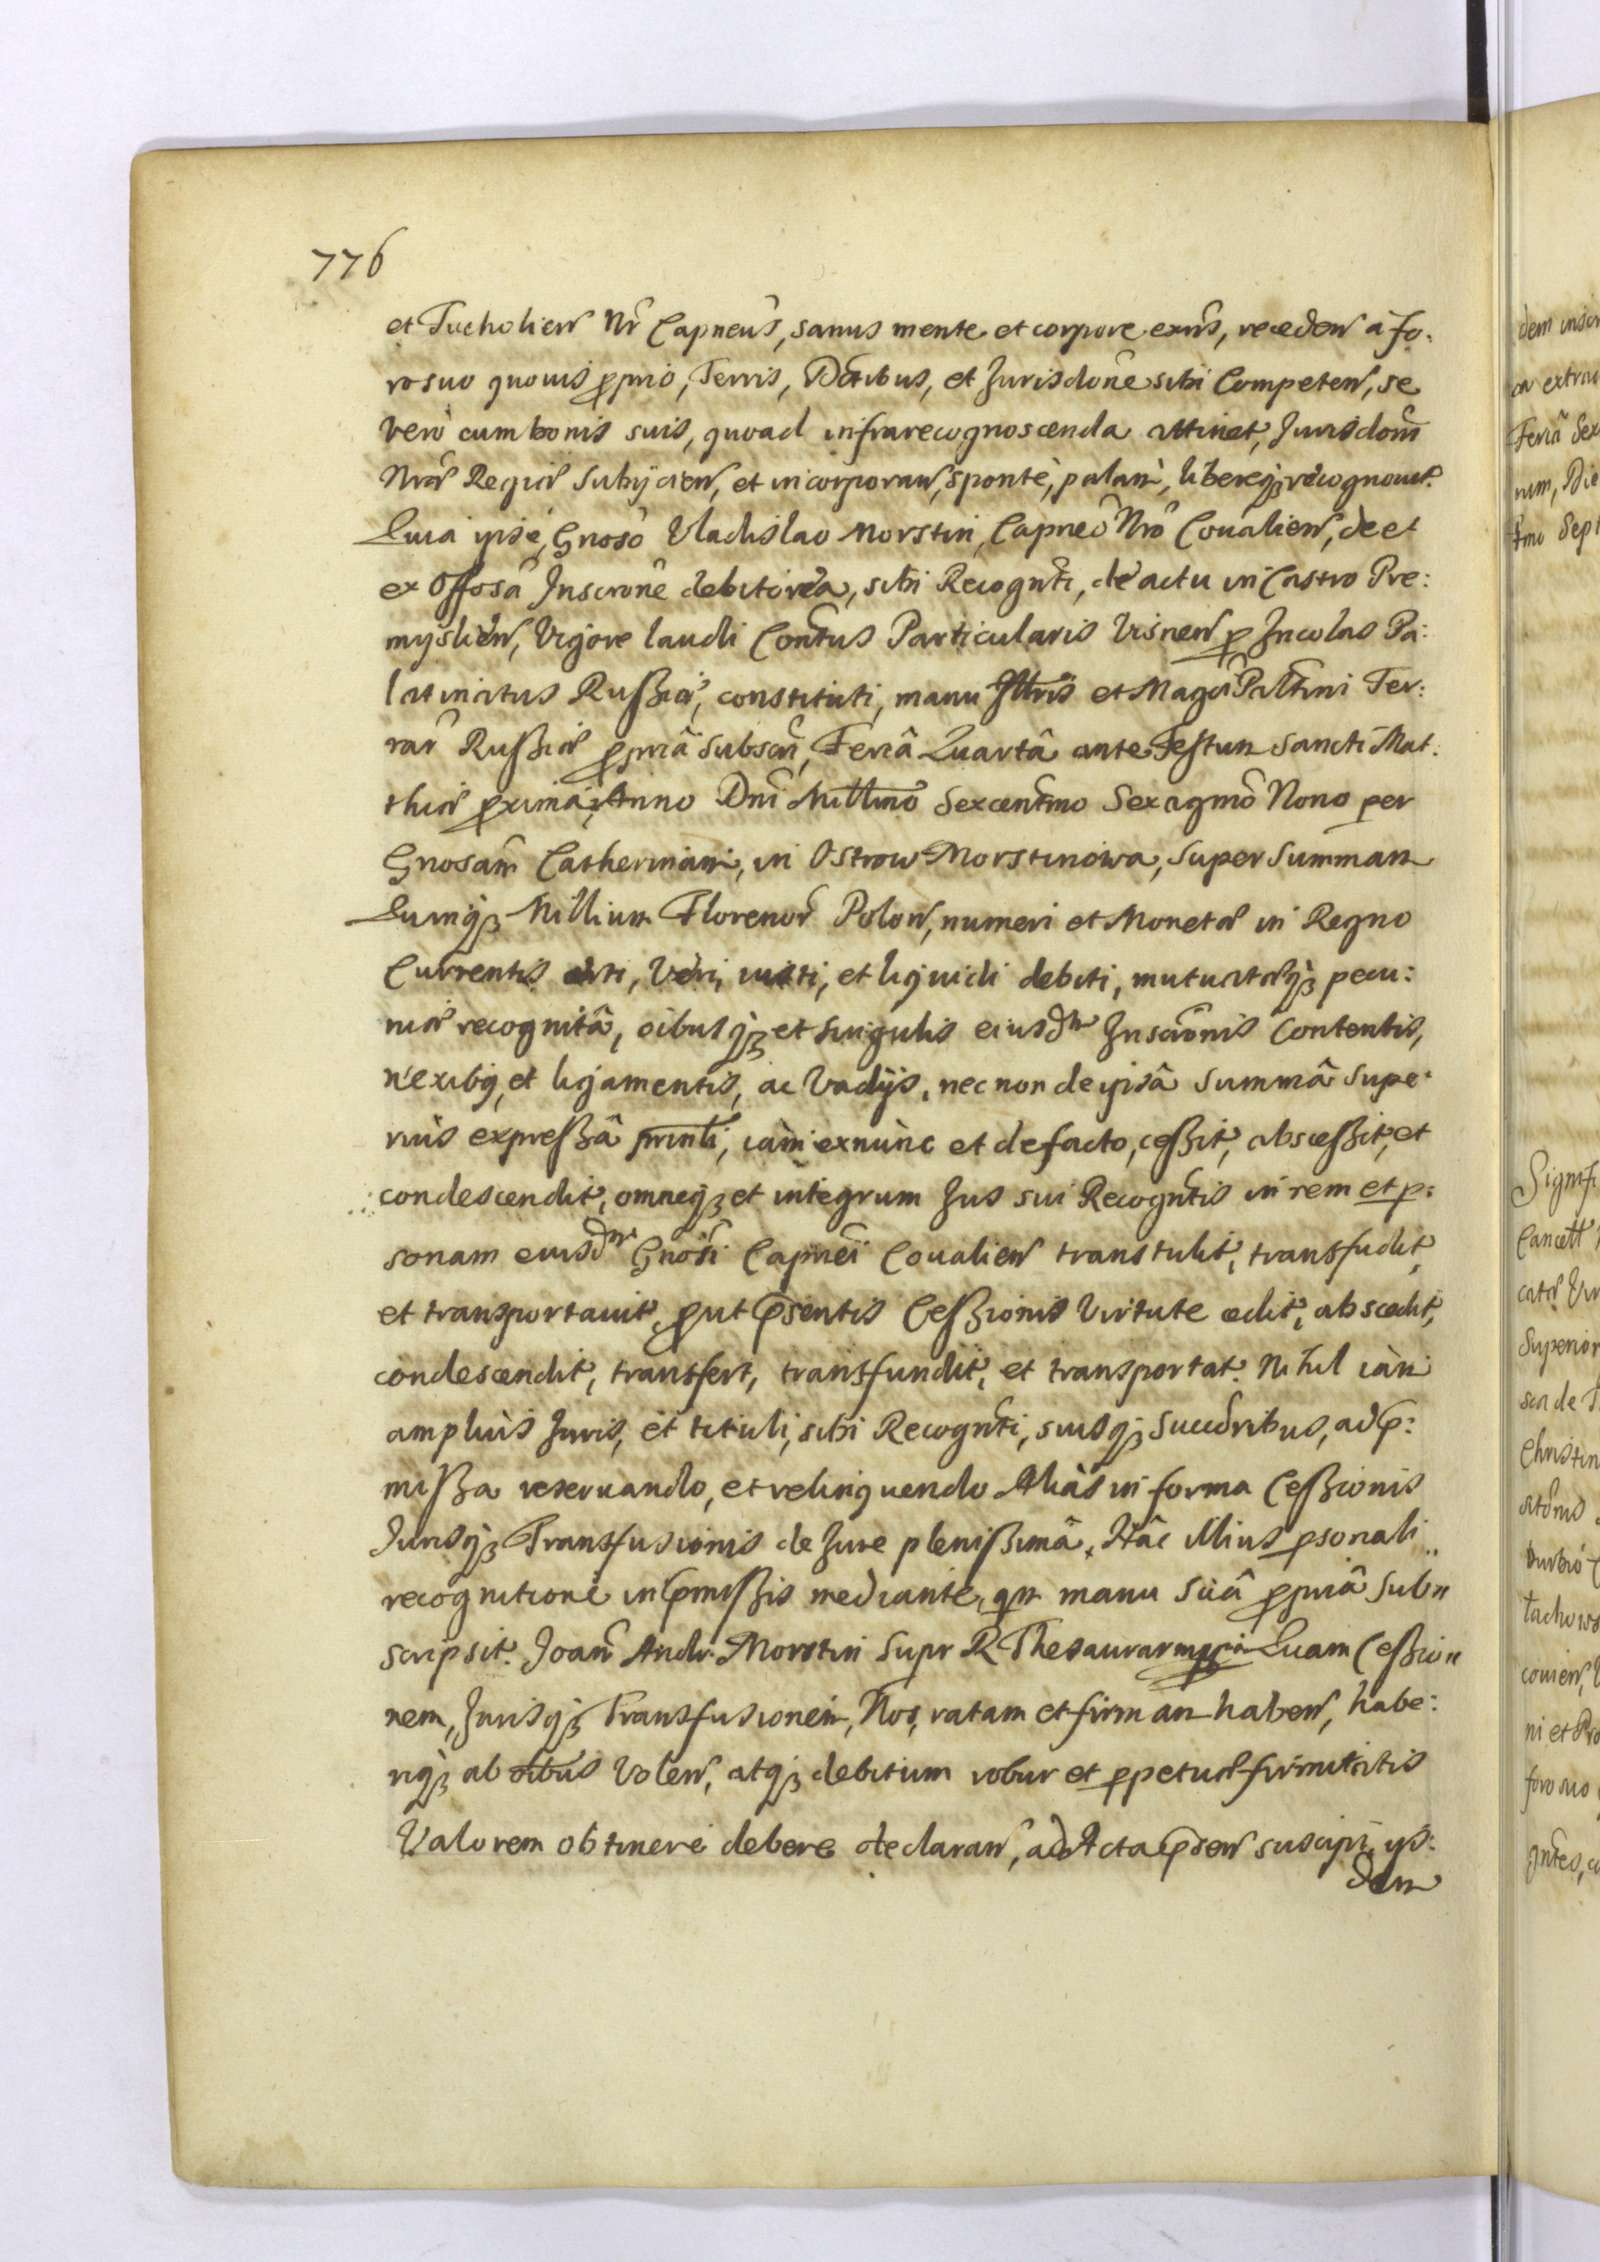 776
et Tucholien Nr Capneus, sanus mente et corpore exns, receden à fo:
ro suo quouis pprio, Terris, Dctibus, et Jurisdone sibi Competen, se
vero cum bonis suis, quoad infrarecognoscenda attinet, Jurisdoni
Nrae Regiae Subijcien, et incorporan, sponte, palam, libereq recognouit.
Quia ipse, Gnoso Vladislao Morstin, Capneo Nro Coualien, de et
ex Offosa Inscrone debitorea, sibi Recognti, de actu in Castro Pre:
myslien, Vigore laudi Contus Particularis Visnen p Incolas Pa:
latinatus Russiae, constituti, manu Illtris et Magci Palatini Ter:
rar Russiae ppriâ Subscri, Feriâ Quartâ ante Festum Sancti Mat:
thiae proximâ, Anno Dni Millmo Sexcentmo Sexagmo Nono per
Gnosam Catherinam, in Ostrow Morstinowa, Super Summam
Quinq Millium Florenor Polon, numeri et Monetae in Regno
Currentis certi, Veri, iusti, et liquidi debiti, mutuataeq pecu:
niae recognitâ, oibusq et Singulis eiusdm Inscronis Contentis,
nexibq, et ligamentis, ac Vadijs, nec non de ipsâ Summâ Supe:
rius expressâ prinli, iam exnunc et de facto, cessit, abscessit, et
condescendit, omneq et integrum Jus sui Recogntis in rem et p:
sonam eiusdm Gnosi Capnei Coualien transtulit, transfudit,
et transportauit, put psentis Cessionis Virtute cedit, abscedit,
condescendit, transfert, transfundit, et transportat. Nihil iam
amplius Juris, et tituli, sibi Recognti, suisq Succribus, ad p:
missa reseruando, et relinquendo Alias in forma Cessionis
Jurisq Transfusionis de Jure plenissimâ. Hâc illius psonali
recognitione in pmissis mediante, qm manu Suâ ppriâ Sub
scripsit. Joan Andr. Morstin Supr R Thesaurar mppria Quam Cessio
nem, Jurisq Transfusionem, Nos, ratam et firmam haben, habe:
riq ab oibus Volen, atq debitum robur et ppetuae firmitatis
Valorem obtinere debere declaran, ad Acta psen suscipi, ijs:
dem